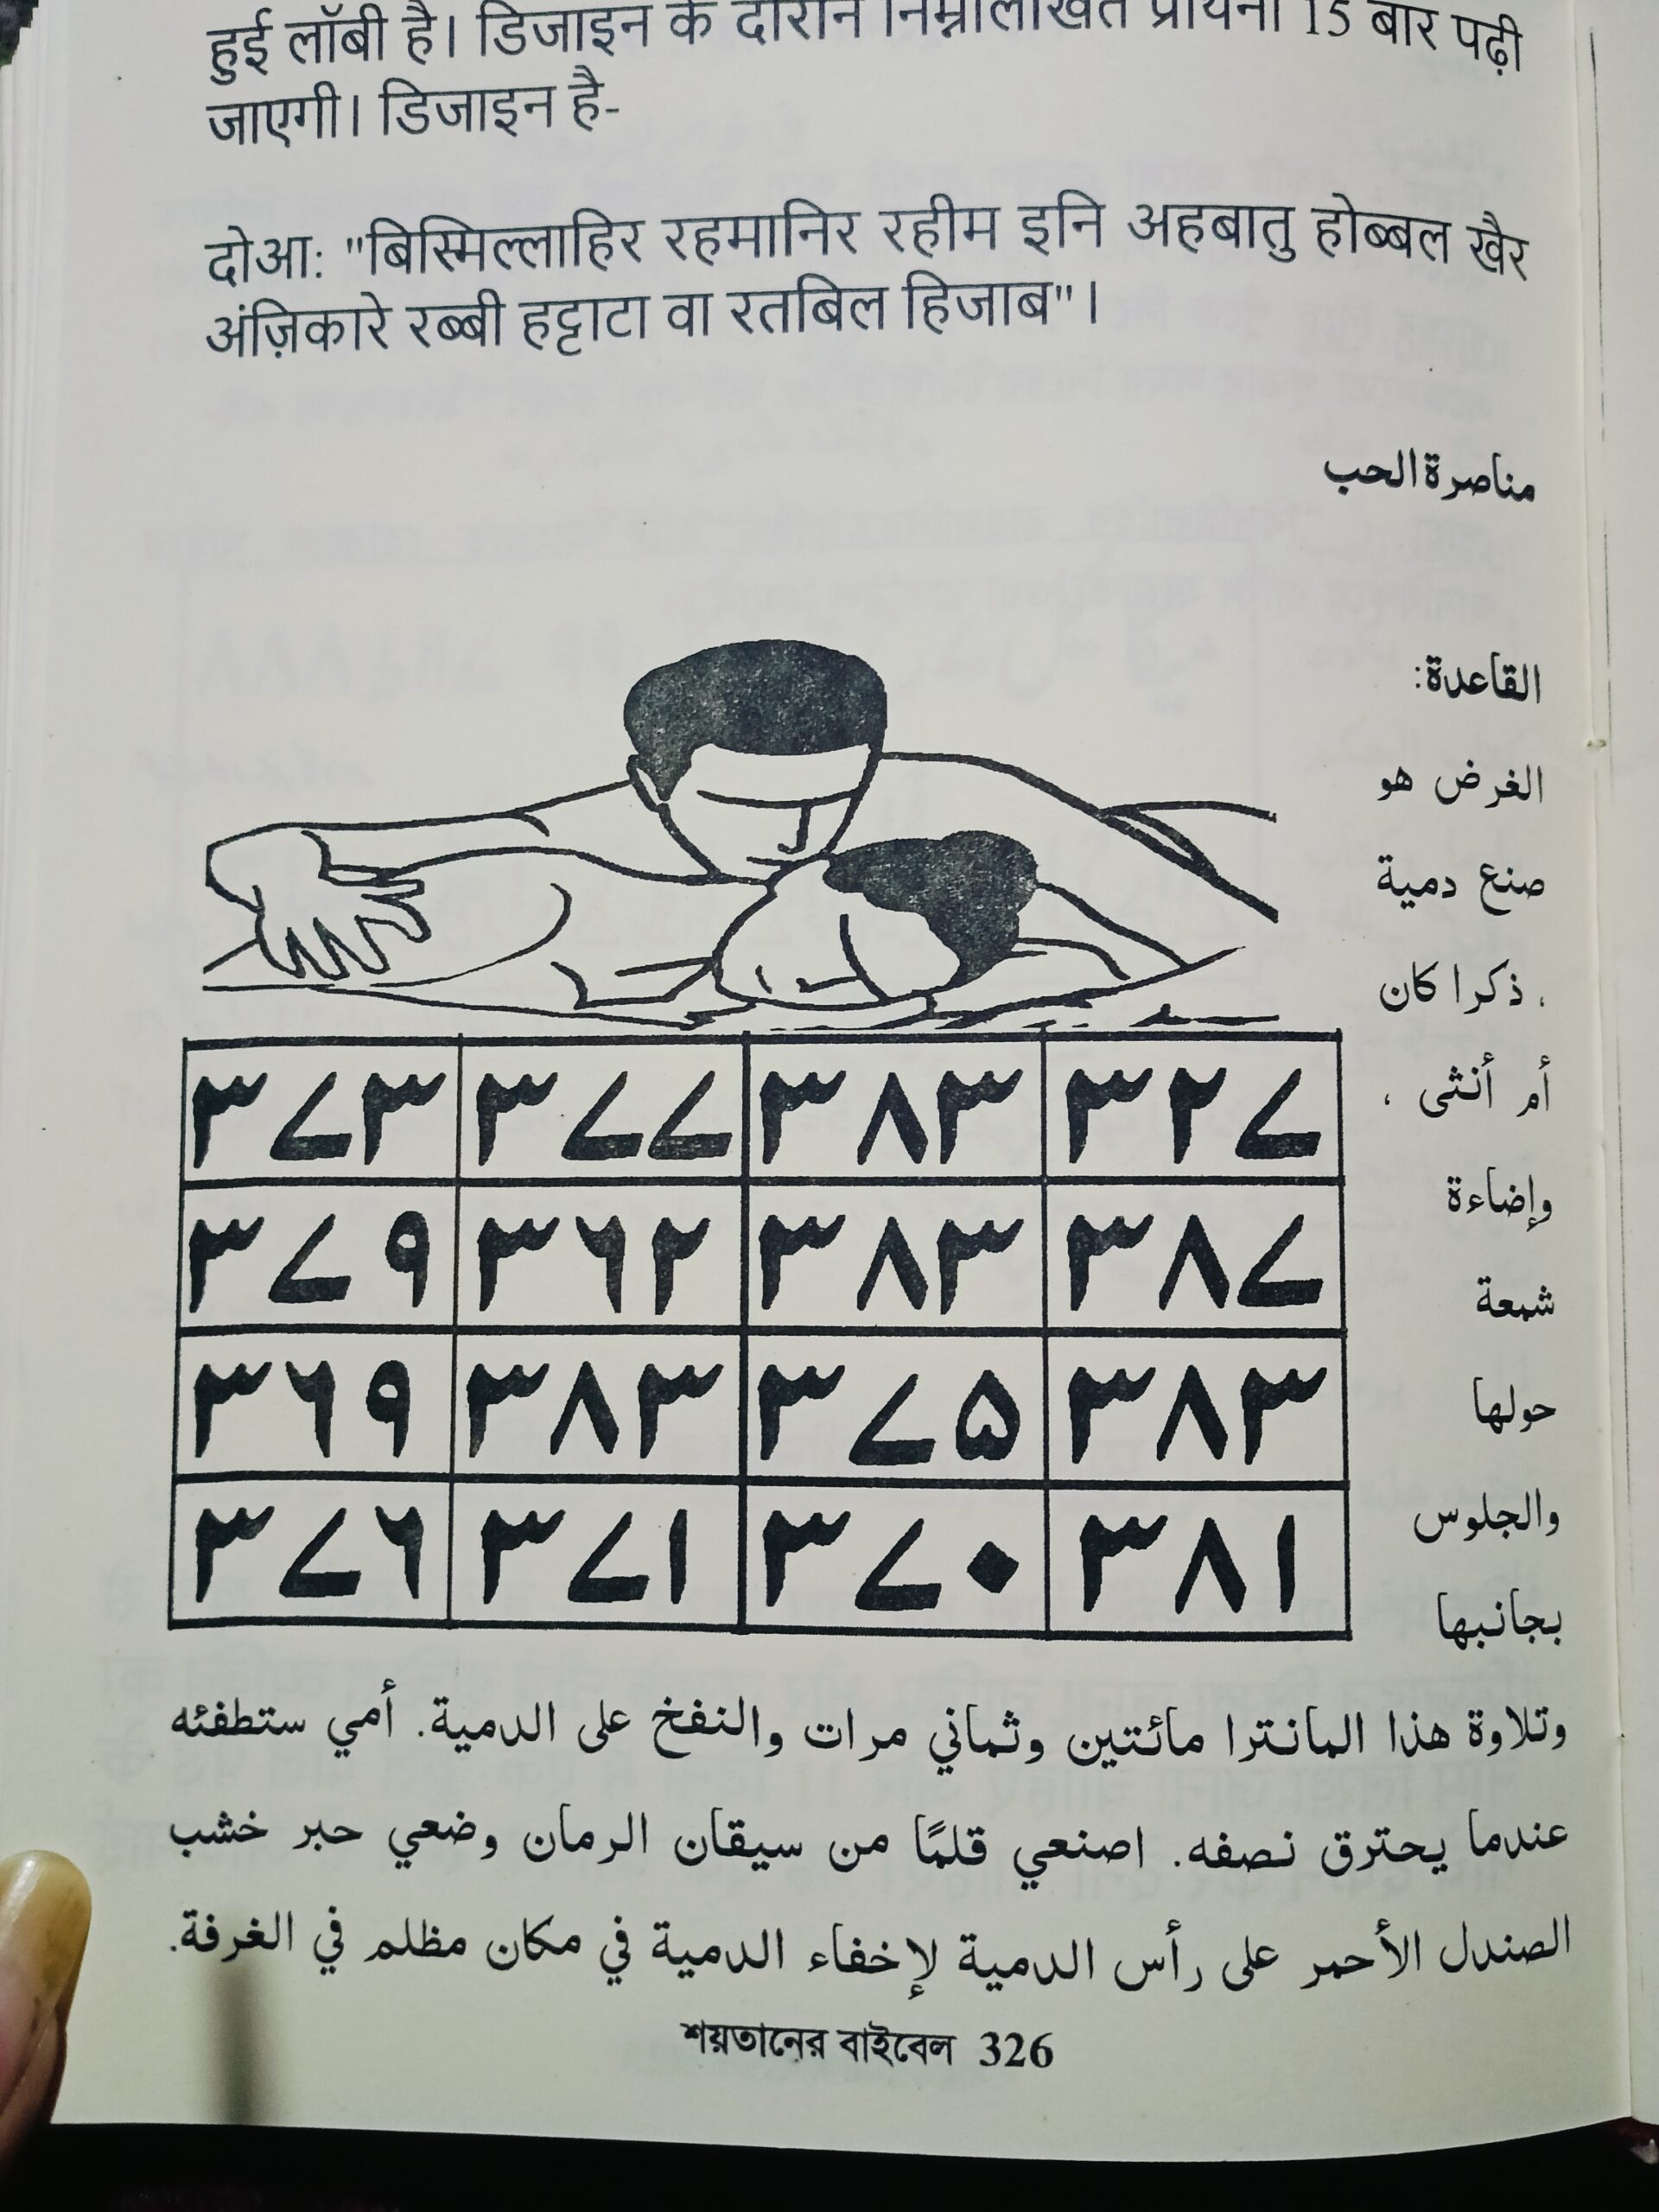 हुई लॉबी है। डिजाइन के दौरान निम्नलिखित प्रार्थना 15 बार पढ़ी
जाएगी। डिजाइन है-
दोआ: "बिस्मिल्लाहिर रहमानिर रहीम इनि अहबातु होब्बल खैर
अंज़िकारे रब्बी हट्टाटा वा रतबिल हिजाब"।
مناصرة الحب
القاعدة:
الغرض هو
صنع دمية
، ذكرا كان
أم أنثى ،
وإضاءة
شمعة
حولها
والجلوس
بجانبها
٣٧٣ ٣٧٧ ٣٨٣ ٣٢٧
٣٧٩ ٣٦٢ ٣٨٣ ٣٨٧
٣٦٩ ٣٨٣ ٣٧۵ ٣٨٣
٣٧٦ ٣٧١ ٣٧٠ ٣٨١
وتلاوة هذا المانترا مائتين وثماني مرات والنفخ على الدمية. أمي ستطفئه
عندما يحترق نصفه. اصنعي قلمًا من سيقان الرمان وضعي حبر خشب
الصندل الأحمر على رأس الدمية لإخفاء الدمية في مكان مظلم في الغرفة.
শয়তানের বাইবেল 326